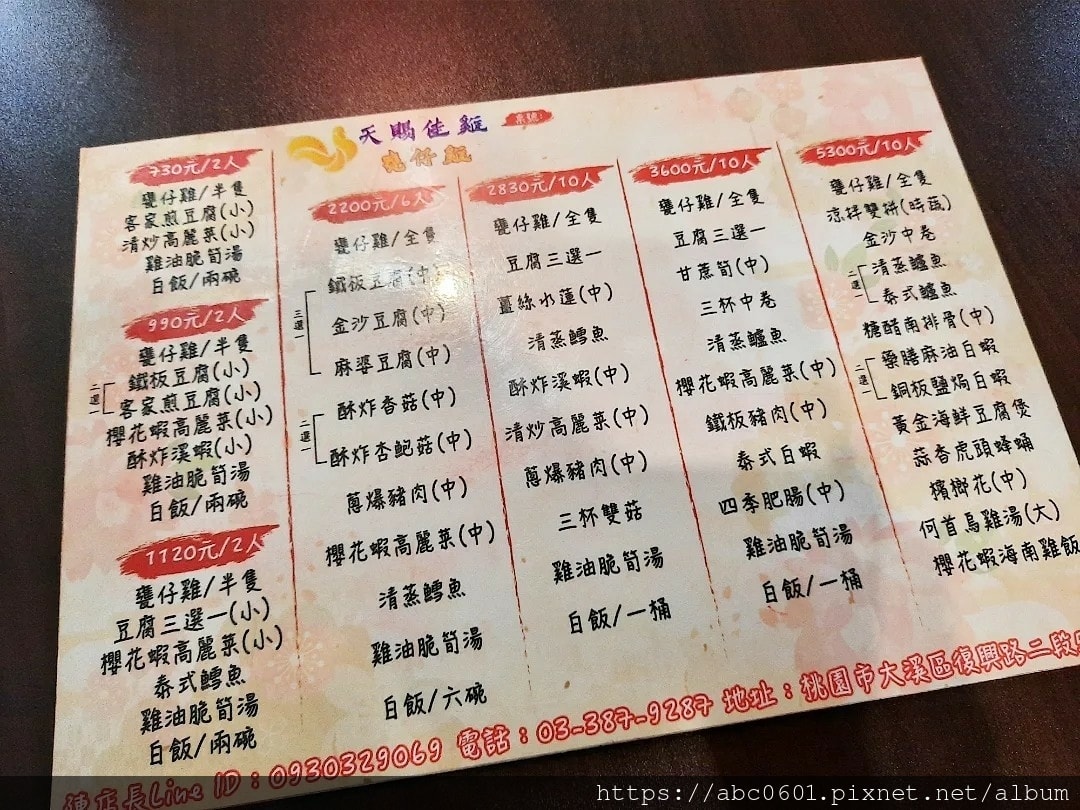 天賜佳雞
甕仔雞
桌號:
730元/2人
甕仔雞/半隻
客家煎豆腐(小)
清炒高麗菜(小)
雞油脆筍湯
白飯/兩碗
990元/2人
甕仔雞/半隻
二選一
鐵板豆腐(小)
客家煎豆腐(小)
櫻花蝦高麗菜(小)
酥炸溪蝦(小)
雞油脆筍湯
白飯/兩碗
1120元/2人
甕仔雞/半隻
豆腐三選一(小)
櫻花蝦高麗菜(小)
泰式鱈魚
雞油脆筍湯
白飯/兩碗
2200元/6人
甕仔雞/全隻
三選一
鐵板豆腐(中)
金沙豆腐(中)
麻婆豆腐(中)
二選一
酥炸香菇(中)
酥炸杏鮑菇(中)
蔥爆豬肉(中)
櫻花蝦高麗菜(中)
清蒸鱈魚
雞油脆筍湯
白飯/六碗
2830元/10人
甕仔雞/全隻
豆腐三選一
薑絲水蓮(中)
清蒸鱈魚
酥炸溪蝦(中)
清炒高麗菜(中)
蔥爆豬肉(中)
三杯雙菇
雞油脆筍湯
白飯/一桶
3600元/10人
甕仔雞/全隻
豆腐三選一
甘蔗筍(中)
三杯中卷
清蒸鱸魚
櫻花蝦高麗菜(中)
鐵板豬肉(中)
泰式白蝦
四季肥腸(中)
雞油脆筍湯
白飯/一桶
5300元/10人
甕仔雞/全隻
涼拌雙拼(時蔬)
金沙中卷
二選一
清蒸鱸魚
泰式鱸魚
糖醋南排骨(中)
二選一
藥膳麻油白蝦
銅板鹽焗白蝦
黃金海鮮豆腐煲
蒜香虎頭蜂蛹
檳榔花(中)
何首烏雞湯(大)
櫻花蝦海南雞飯
陳店長Line ID：0930329069 電話：03-387-9287 地址：桃園市大溪區復興路二段
https://abc0601.pixnet.net/album